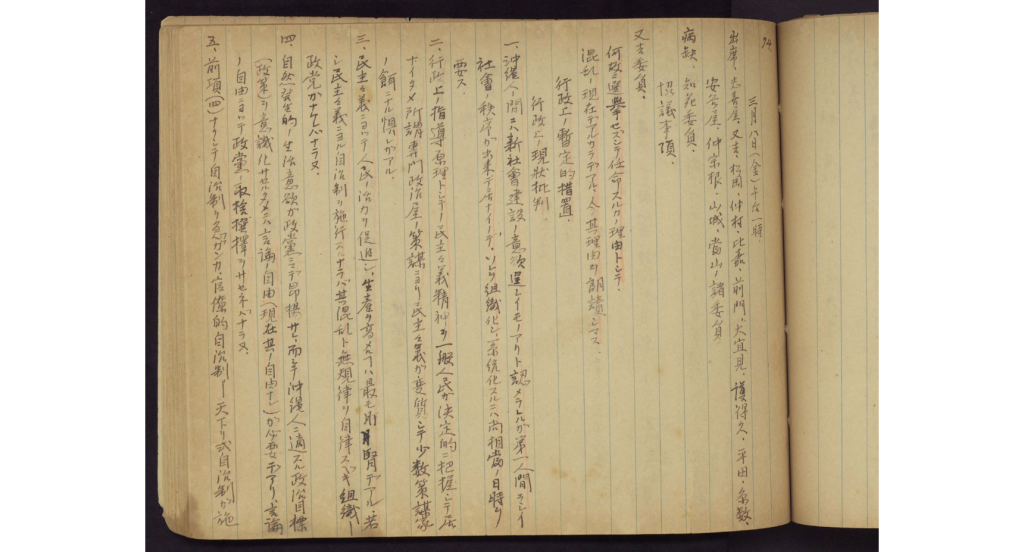 74
三月八日(金)午后一時
出席、志喜屋、又吉、松岡、仲村、比嘉、前門、大宜見、護得久、平田、糸数、
安谷屋、仲宗根、山城、當山ノ諸委員
病缺、知花委員、
協議事項、
又吉委員、
何故ニ選挙セズシテ任命スルカノ理由トシテ、
混乱ノ現在デアルカラデアル、今其理由ヲ朗讀シマス
行政上ノ暫定的措置、
行政ニ現狀批判
一、沖縄人ノ間ニハ新社會建設ノ意欲 アリト認メラレルガ第一人間ラシイ
社會ノ秩序ガ出来テ居ナイノデ、ソレヲ組織化シ、系統化スルニハ尚相當ノ日時ヲ
要ス、
二、行政上ノ指導原理トシテノ民主々義精神ヲ一般人民ガ決定的ニ把握シテ居
ナイタメ所謂専門政治屋ノ策謀ニヨリ民主々義ガ変質シテ少数策謀家
ノ餌ニナル惧レガアル、
三、民主々義ニヨツテ人民ノ治力ヲ促進シ、生産ヲ高メルハ最モ賢デアル、若
シ民主々義ニヨル自治制ヲ施行スルナラバ其混乱ト無規律ヲ自律スベキ組織
政党ガナケレバナラヌ、
四、自然発生的ノ生治意欲ガ政黨ニマデ昂揚サレ、而シテ沖縄人ニ適スル政治目標
(政策)ヲ意識化サセルタメニハ言論ノ自由(現在其ノ自由ナシ)ガ必要デアリ、言論
ノ自由ニヨツテ政黨ノ取捨撰擇ヲサセネバナラヌ、
五、前項(四)ナクシテ自治制ヲ急ガンカ、官僚的自治制ー天下リ式自治制ガ施